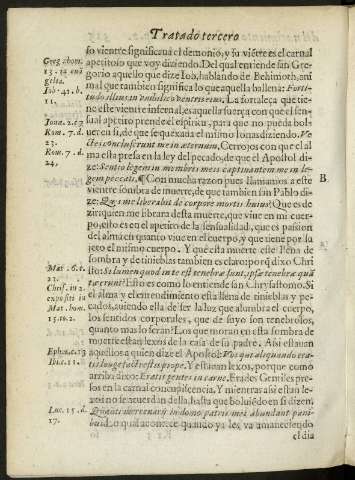 Tratado tercero
so vientre significaua el demonio, y su viẽtre es el carnal
apetitoso que voy diziendo. Del qual entiende san Gre-
gorio aquello que dize Iob, hablando de Behimoth, ani
mal que tambien significa lo que aquella ballena: Forti-
tudo illius in vmbilico ventris eius. La fortaleza que tie-
ne este infernal, es aquella fuerça con que el sen-
sual apetito prende el espiritu, para que no pueda bol-
uer en si, de que se quexaua el mismo Ionas diziendo. Ve
ctes concluserunt me in æternum, Cerrojos con que el al
ma esta presa en la ley del pecado, de que el Apostol di-
ze: Sentio legem in membris meis captiuantem me in le-
gem peccati. ¶ Con mucha razon pues llamamos a este
vientre sombra de muerte, de que tambien san Pablo di-
ze: Quis me liberabit de corpore mortis huius? Que es de-
zir quien me librara desta muerte, que viue en mi cuer-
po, esto es en el apetito de la sensualidad, que es passion
del alma en quanto viue en el cuerpo, y que tiene por su-
jeto el mismo cuerpo. Y que esta muerte este llena de
sombra y de tinieblas tambien es claro: porq̃ dixo Chri
sto: Si lumen quod in te est tenebræ sunt, ipsæ tenebræ quã
tæ erunt? Esto es como lo entiende san Chrysostomo. Si
el alma y el entendimiento esta llena de tinieblas y pe-
cados, auiendo ella de ser la luz que alumbra el cuerpo,
los sentidos corporales, que de suyo son tenebrosos,
quanto mas lo seran? Los que moran en esta sombra de
muerte estan lexos de la casa de su padre. Assi estauan
aquellos a quien dize el Apostol: Vos qui aliquando era-
tis longe facti estis prope. Y estauan lexos, porque como
arriba dixo: Eratis gentes in carne. Erades Gentiles pre-
sos en la carnal concupiscencia, Y mientras assi estan le-
xos no se acuerdan della, hasta que boluiẽdo en si dizen.
Quanti mercenarij in domo patris mei abundant pani-
bus. Lo qual acontece quando ya les va amaneciendo
el dia
Greg. hom.
Iob. 41. b.
11.
Ionæ. 2. c. 7
Rom. 7. d.
23.
Rom. 7. d.
24.
B.
Mat. 6. c.
22.
Mat. hom.
Ephe. 2. c. 13
Ibi. c. 11.
Luc. 15. d.
17.